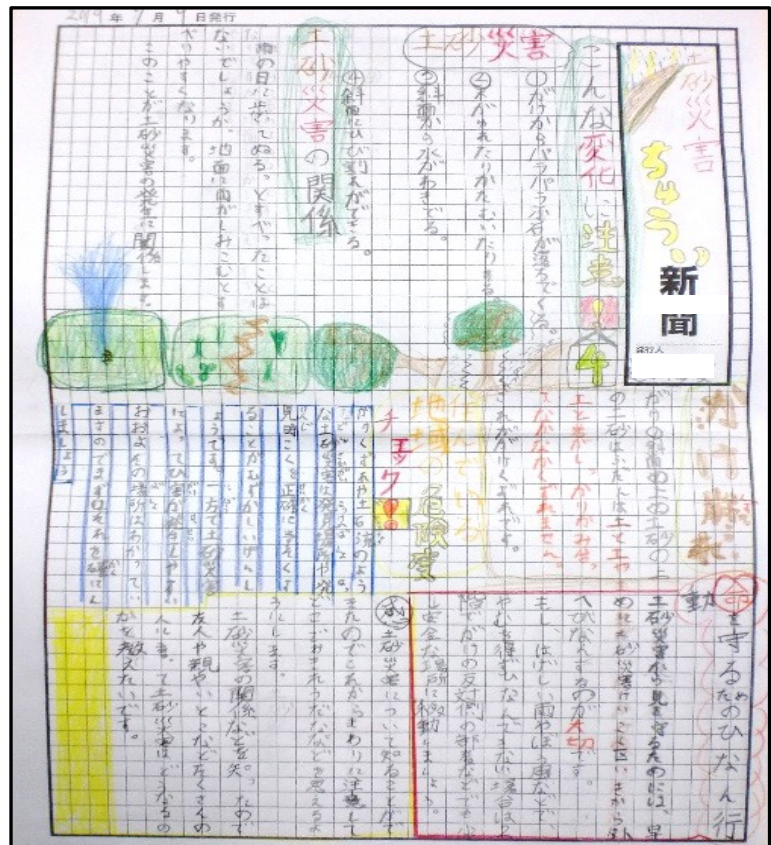 2019年7月9日発行
土砂災害
ちゅうい
新聞
発行人
こんな変化に注意!
4
土砂災害
①がけからパラパラ小石が落ちてくる。
②木がゆれたりかたむいたりする。
③斜面から水がわきでる。
④斜面にひび割れができる。
土砂災害の関係
雨の日に走ってぬるっとすべったことは
ないでしょうか。地面に雨がしみこむとす
べりやすくなります。
このことが土砂災害の発生に関係します。
がけ崩れ
がりの斜面の上の土砂の上
の土砂はふだんは土と土や
土と岩がしっかりかみ合っ
てなかなかくずれません。
これががけくずれです。
住んでいる
地域の危険度
チェック!
がけくずれや土石流のよう
な土砂災害は発生場所や発
見時こくを正確に予そくす
ることがむずかしいげんし
ょうです。一方で土砂災害
によってひ害が発生しやすい
おおよその場所はわかってい
ますのでまずはそれを確にん
しましょう
命を守るためのひなん行
動
土砂災害から身を守るためには、早
めに土砂災害けいかい区いきから外
へひなんするのが大切です。
もし、はげしい雨やぼう風などで、
やむを得ずひなんできない場合は2
階でがけの反対側の部屋などでも少
し安全な場所に移動しましょう。
土砂災害について知ることがで
きたのでこれからまわりに注意して
どこでおきそうだなどを思えるよ
うにします。
土砂災害の関係などを知ったので
友人や親やいとこなどたくさんの
人にも、て土砂災害はどうなるの
かを教えたいです。